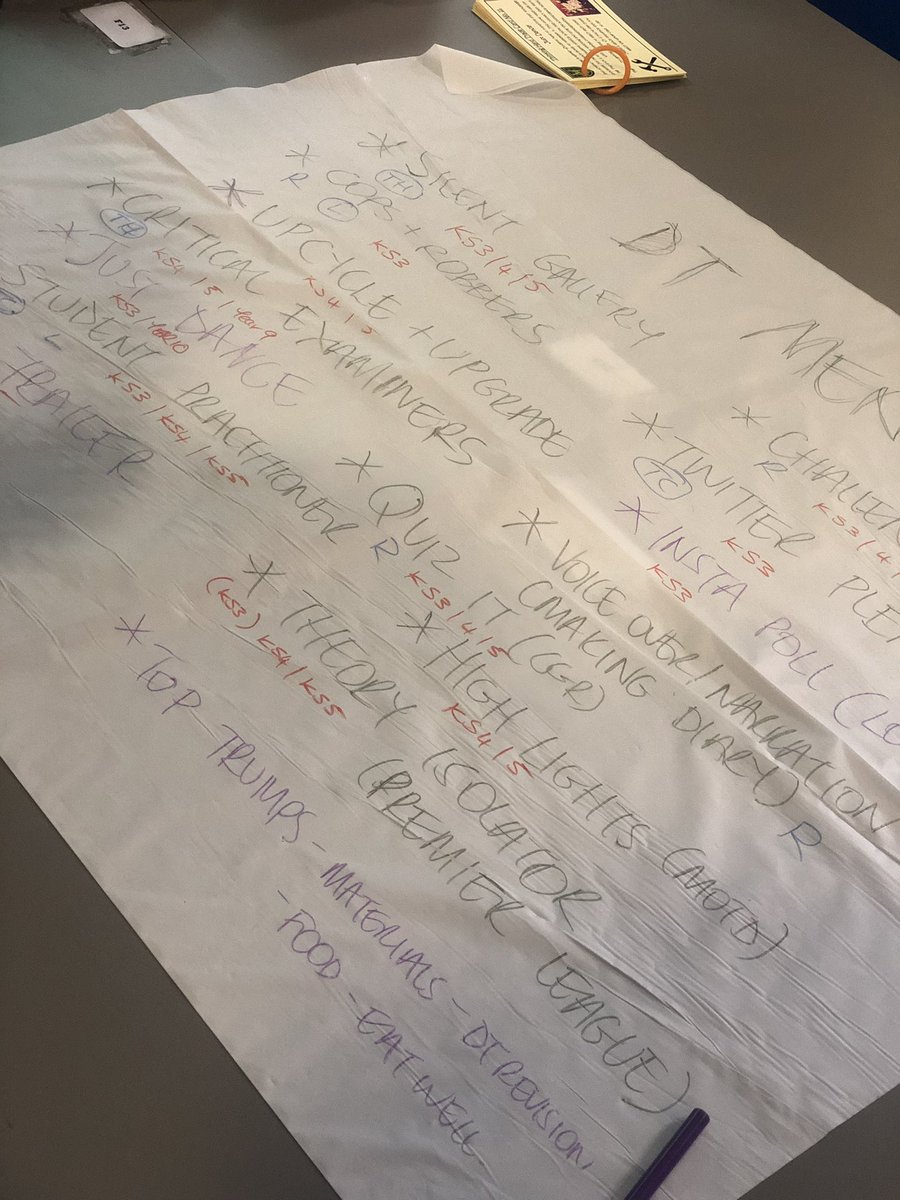 F13
DT MEN
* SILENT GALLERY
TH KS3/4/5
* COPS + ROBBERS
R T KS3
* UPCICLE + UPGRADE
KS4/5
* CRITICAL EXAMINERS
TH KS4/5/Year 9
* JUST DANCE
KS3/YEAR10
STUDENT PRACTITIONER R
L KS3/KS4/KS5
TRAILER
* CHALLEN
R KS3/4/
* TWITTER PLE
TC KS3
* INSTA POLL (LO
KS3
* VOICE OVER/NARRATION
(MAKING DIARY) R
* QUIZ IT (GGR)
KS3/4/5
* HIGHLIGHTS (MOTD)
KS4/5
* THEORY ISOLATOR
(KS3) KS4/KS5
(PREMIER LEAGUE)
* TOP TRUMPS - MATERIALS - DT REVISION
- FOOD - EATWELL